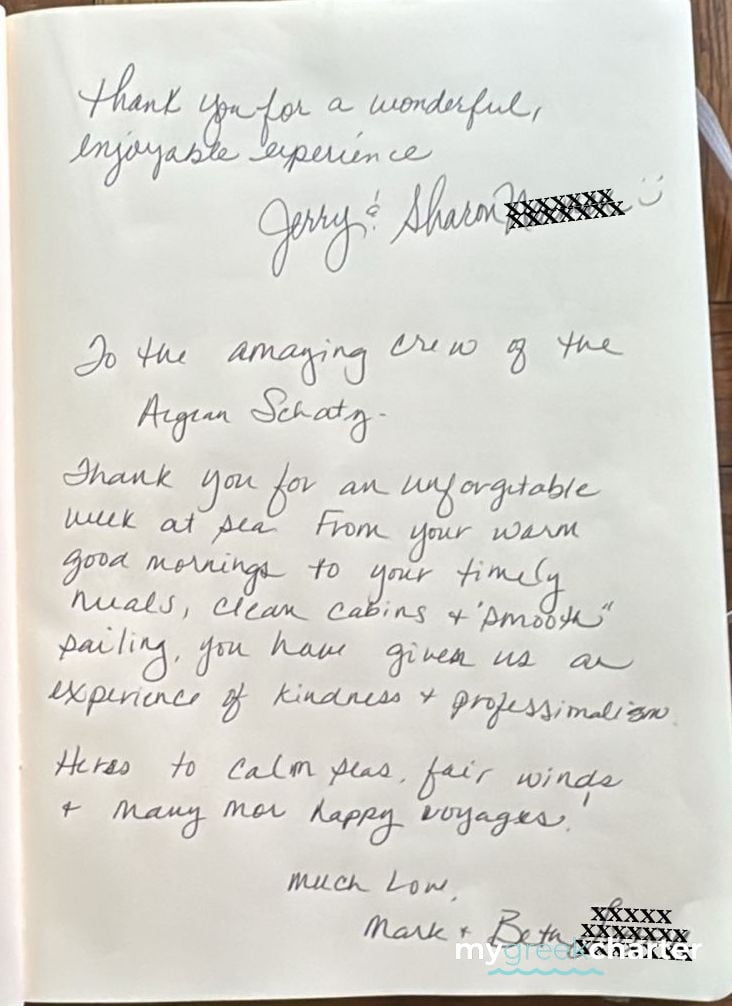 thank you for a wonderful,
enjoyable experience
Jerry & Sharon
XXXXXXX
XXXXXXXX
To the amazing crew of the
Aegean Schatz-
Thank you for an unforgetable
week at sea. From your warm
good mornings to your timely
meals, clean cabins + "smooth"
sailing, you have given us an
experience of kindness + professionalism.
Heres to calm seas, fair winds
+ many mor happy voyages!
much Love,
Mark + Beth
XXXXX
XXXXXXX
XXXXXXXX
mygreekcharter